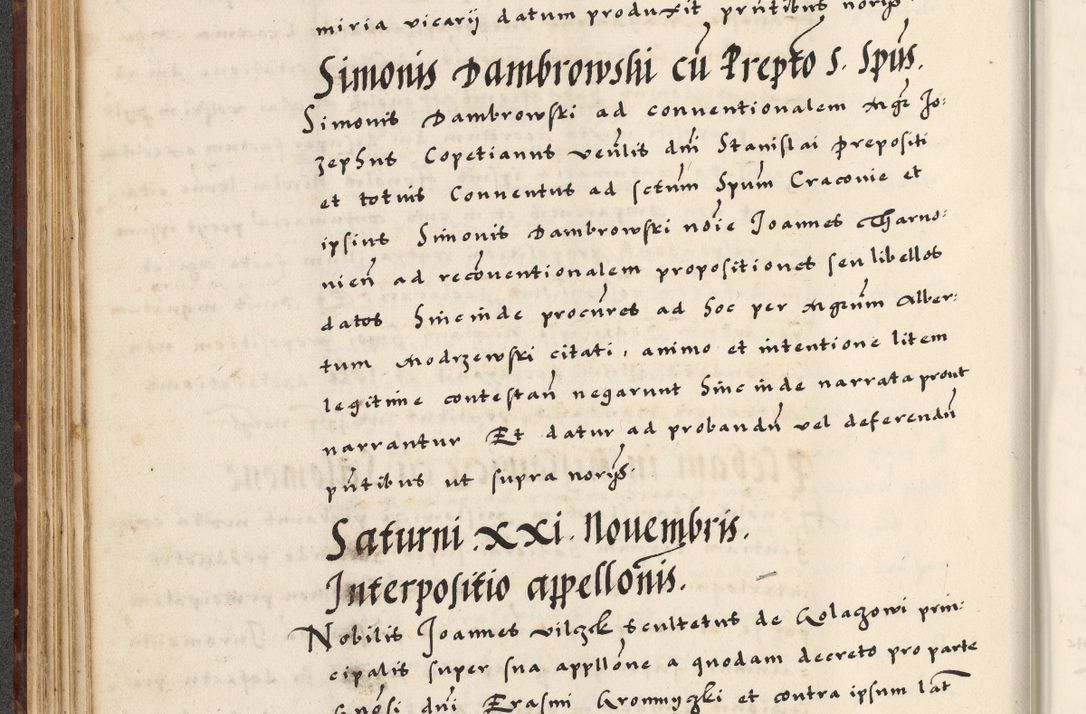 miria vicarij datum produxit pñtibus norijs
Simonis Dambrowski cũ Prepto S. Spũs.
Simonis Dambrowski ad conventionalem Mgr̃ Jo:
zephus Copetianus veñlis dñi Stanislai Prepositi
et totius Conventus ad sctũm Spũm Cracovie et
ipsius Simonis Dambrowski nõie Joannes Tharno:
vieñ ad recõventionalem propositiones seu libellos
datos hincinde procũres ad hoc per Mgrũm Alber:
tum Modrzewski citati, animo et intentione litem
legitime contestañ negarunt hinc inde narrata prout
narrantur Et datur ad probandũ vel deferendũ
pñtibus ut supra norijs.
Saturni .XXI. Novembris.
Interpositio appellõnis.
Nobilis Joannes Vilczek Scultetus de Kolaczowi prin:
cipalis super sua appllõne a quodam decreto pro parte
dñi Erasmi Kromiyczki et contra ipsum lat̃